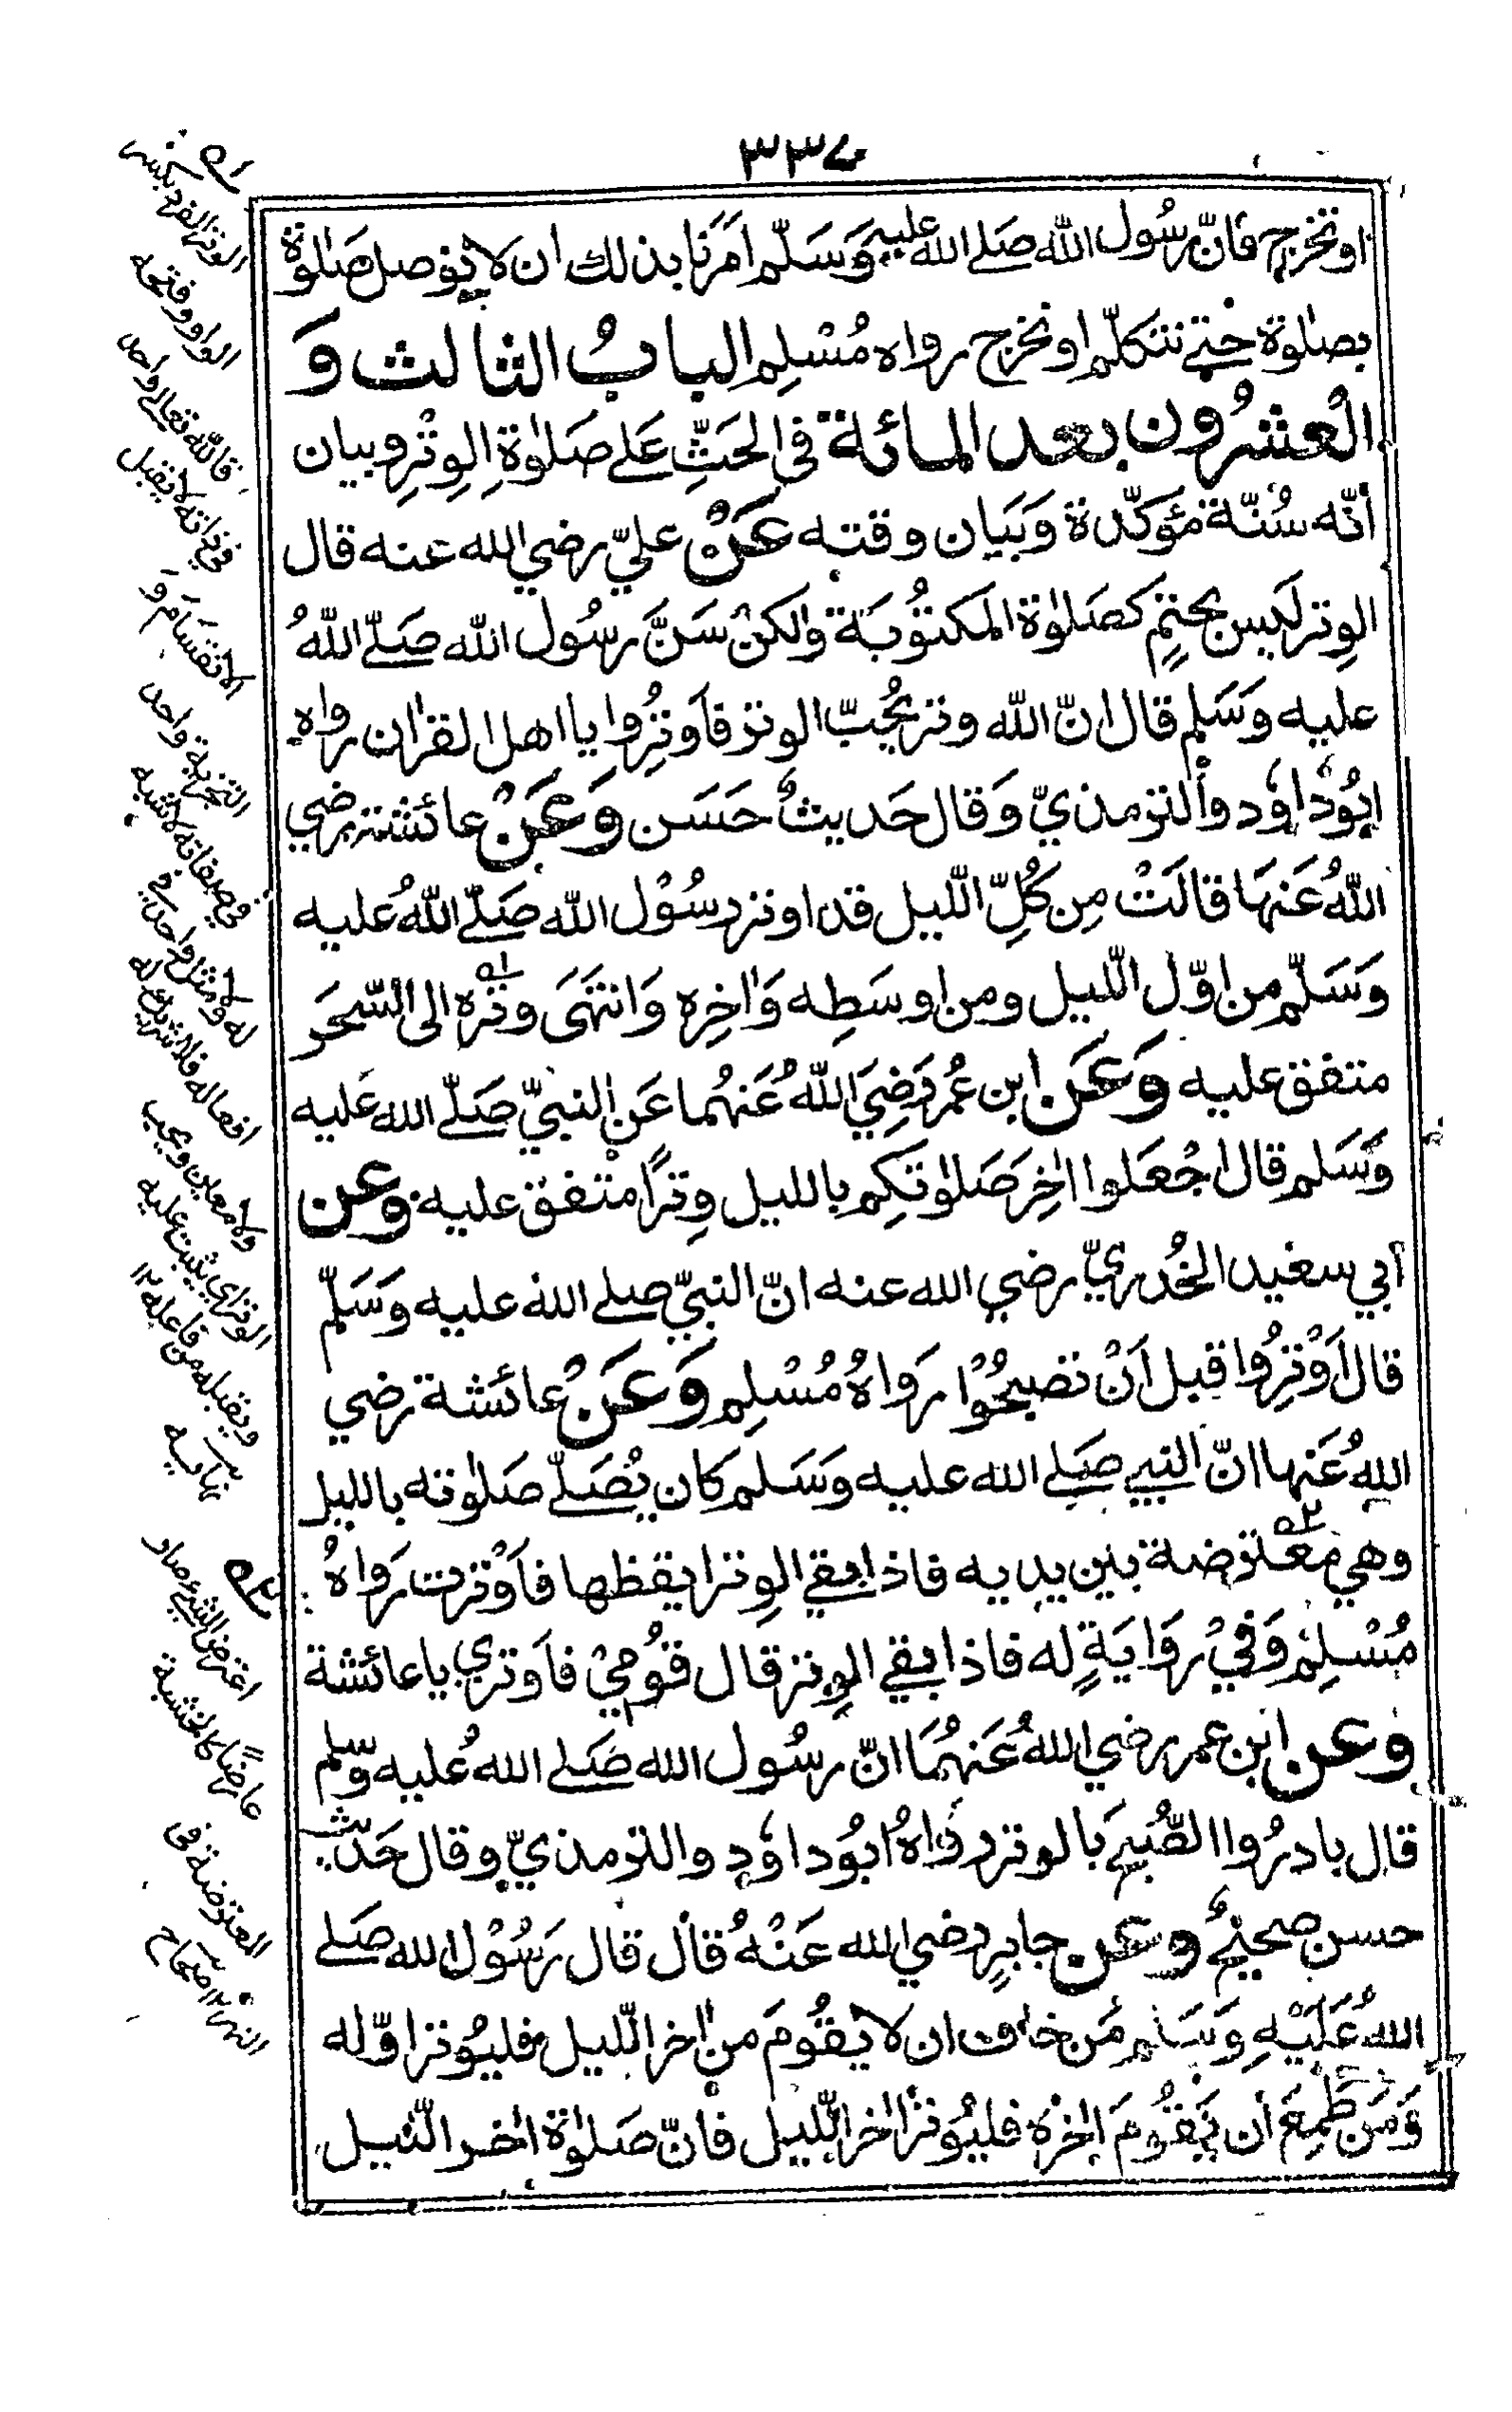 ٣٣٧
اوتخرج فانّ رسُول الله صَلے الله عليه وَسَلّم امَرَنا بذلك ان لا نوصل صَلٰوة
بصلٰوة حتے نتكلّم او نخرج رواه مُسْلِم الباب الثالث وَ
الْعشرُون بعد المائة فى الحَثِّ عَلے صَلٰوةِ الوِتْرِ وبيان
أنّه سُنّة مؤكّدة وَبَيان وقته عَنْ عليّ رضي الله عنه قال
الوِتر لَيس بحتمٍ كصَلٰوة المَكتُوبَة وَلكنْ سَنَّ رسُول الله صَلّے اللهُ
عليه وَسَلم قال انّ الله وتر يُحِبّ الوتر فاَوتِرُوا يا اهل القراٰن رواه
ابُوداوٗد والترمذيّ وَقال حَديثٌ حَسَن وَعَنْ عائشة رضي
اللهُ عَنهَا قالَتْ مِن كُلِّ الّليل قد اوتر رسُوْل الله صَلّے اللهُ عليه
وَسَلّم من اوّل الّليل ومن اوسَطِه وَاٰخِرِه وَانتهَى وترُه الى السّحَر
متفق عليه وَعَن ابن عُمر رَضِيَ اللهُ عَنهُما عَنِ النبيّ صَلّے الله عَليه
وَسَلم قال اجْعَلوا اٰخِرَ صَلٰوتكِم بالليل وِترًا متفق عليه وعن
أبي سعيد الخُدريّ رضي الله عنه انّ النبيّ صلے الله عليه وَسَلّم
قال اَوْتِرُوا قبل اَنْ تصبحُوْا رَواهُ مُسْلِم وَعَنْ عائشة رضي
اللهُ عَنها انّ النبي صَلے الله عليه وَسَلم كان يُصَلّے صَلٰوته بالليل
وهي معترضة بين يديه فاذا بقي الوِتر ايقظها فاَوْترت رَواهُ
مُسْلِم وَفيْ روَايَةٍ له فاذا بقي الوِتر قال قُومِيْ فاَوتري يا عائشة
وعن ابن عمر رضي اللهُ عَنهُمَا انّ رسُول الله صَلے اللهُ عليه وسّلم
قال بادرُوا الصُّبحَ بالوتر رَواهُ ابُو داوٗد والترمذيّ وقال حَديث
حسن صحيحٌ وعن جابرٍ رضي الله عَنْهُ قال قال رَسُوْل الله صَلے
اللهُ عَلَيْهِ وَسَلم مَن خاف ان لا يقُومَ من اٰخر الّليل فليُوتر اوّله
وَمَن طَمِعَ أن يَقُومَ اٰخرَه فليُوتر اٰخر الّليل فانّ صَلٰوة اٰخر الّليل
الوتر الفرد بكسر
الواو وفتحه
فالله تعالى واحد
في ذاته لا يقبل
الانقسام و
التجزية واحد
في صفاته لا شبه
له ولا مثل واحد في
افعاله فلا شريك له
ولا معين ويحب
الوتر اى يثبت عليه
ويقبله من فاعله ١٢
نهايه
اعترض الشئ صار
عارضًا كالخشبة
المعترضة فى
النهر ١٢ صحاح